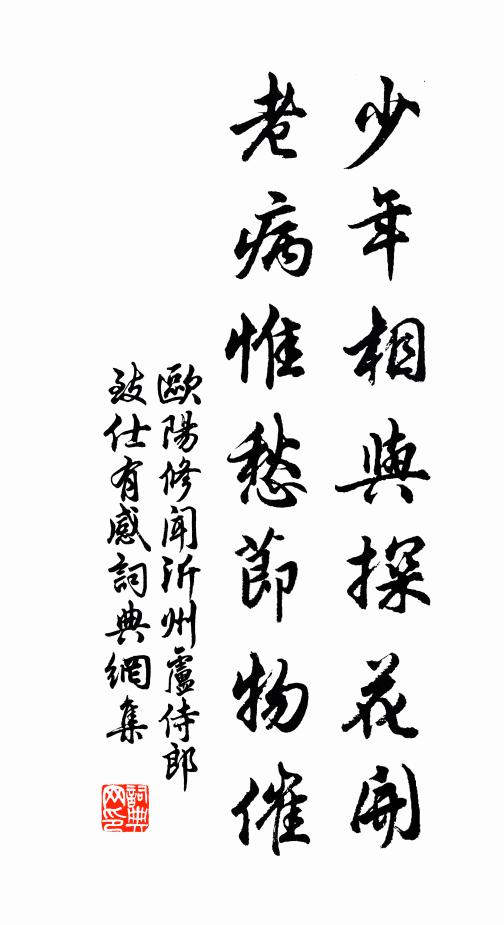 少年相與探花開
老病惟愁節物催
歐陽修聞沂州盧侍郎
致仕有感詞典網集
詞典網印